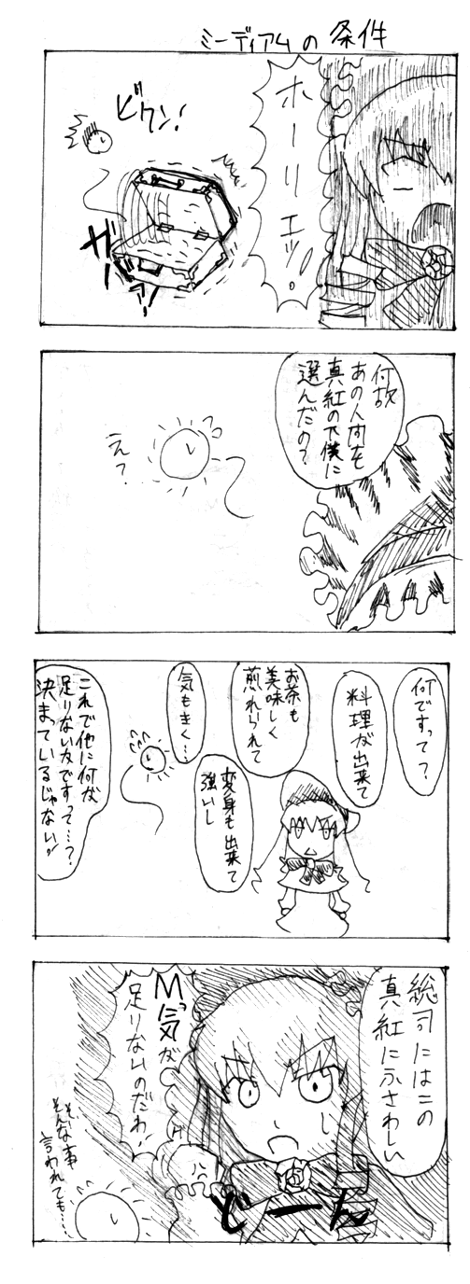 ミーディアムの条件
ホーリエッ!
ビクン!
ガーッ
何故
あの人間を
真紅の下僕に
選んだの?
え?
何ですって?
料理が出来て
お茶も
美味しく
煎れられて
気もきく…
変身も出来て
強いし
これで他に何が
足りないですって…?
決まっているじゃない!
総司にはこの
真紅にふさわしい
M気が
足りないのだわ!
どーん
そ、そんな事
言われても……